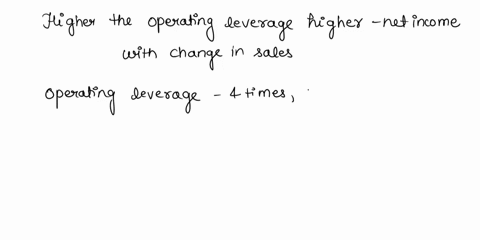 Higher the operating leverage higher - net income
with change in sales
Operating leverage - 4 times,